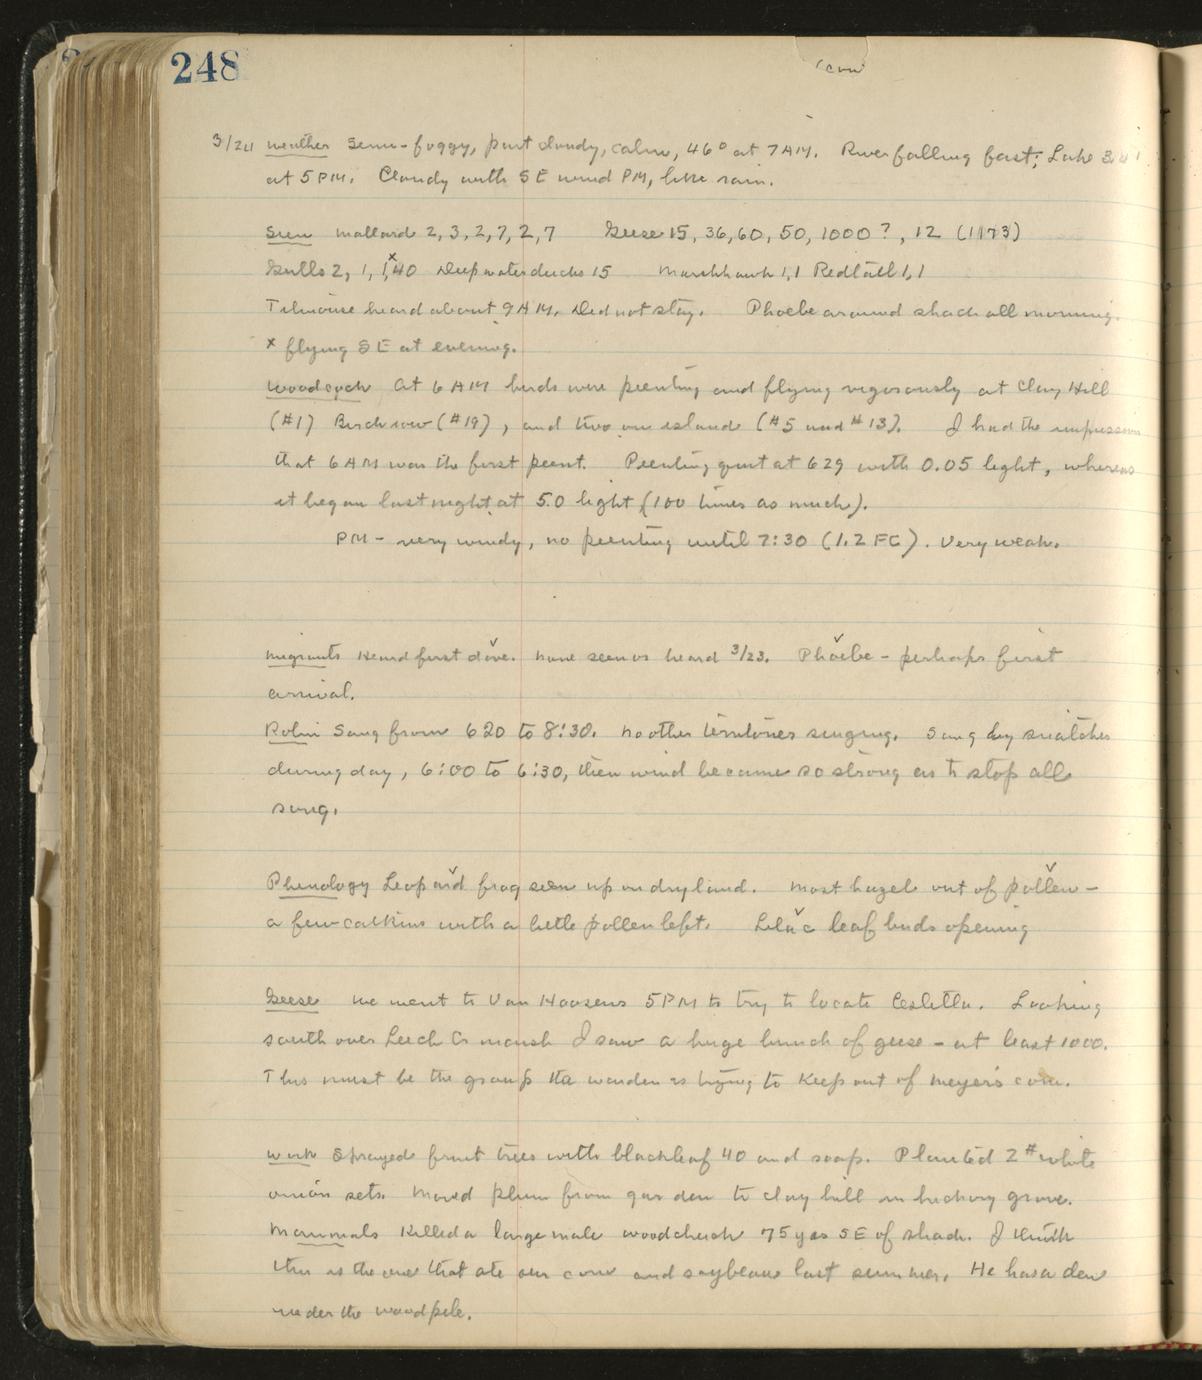 248
(con
3/24 weather Semi-foggy, part cloudy, calm, 46° at 7 AM. River falling fast; Lake
at 5 PM. Cloudy with SE wind PM, like rain.
Seen mallard 2, 3, 2, 7, 2, 7 Geese 15, 36, 60, 50, 1000?, 12 (1173)
Gulls 2, 1, 1, 40 x Deepwater ducks 15 Marshhawk 1, 1 Redtail 1, 1
Titmouse heard about 9 AM. Did not stay. Phoebe around shack all morning.
x flying SE at evening.
Woodcock At 6 AM birds were peenting and flying vigorously at Clay Hill
(#1) Birch row (#19), and two on island (#5 and #13). I had the impression
that 6 AM was the first peent. Peenting quit at 629 with 0.05 light, whereas
it began last night at 5.0 light (100 times as much).
PM - very windy, no peenting until 7:30 (1.2 FC). Very weak.
Migrants Heard first dove. None seen or heard 3/23. Phoebe - perhaps first
arrival.
Robin Sang from 620 to 8:30. No other territories singing. Sang by snatches
during day, 6:00 to 6:30, then wind became so strong as to stop all
song.
Phenology Leopard frog seen up on dry land. Most hazel out of pollen -
a few catkins with a little pollen left. Lilac leaf buds opening
Geese We went to Van Hoosens 5 PM to try to locate Estella. Looking
south over Leech Cr marsh I saw a huge bunch of geese - at least 1000.
This must be the group the warden is trying to keep out of Meyer's corn.
Work Sprayed fruit trees with blackleaf 40 and soap. Planted 2# white
onion sets. Moved plum from garden to clay hill in hickory grove.
Mammals Killed a large male woodchuck 75 yds SE of shack. I think
this is the one that ate our corn and soybeans last summer. He has a den
under the woodpile.